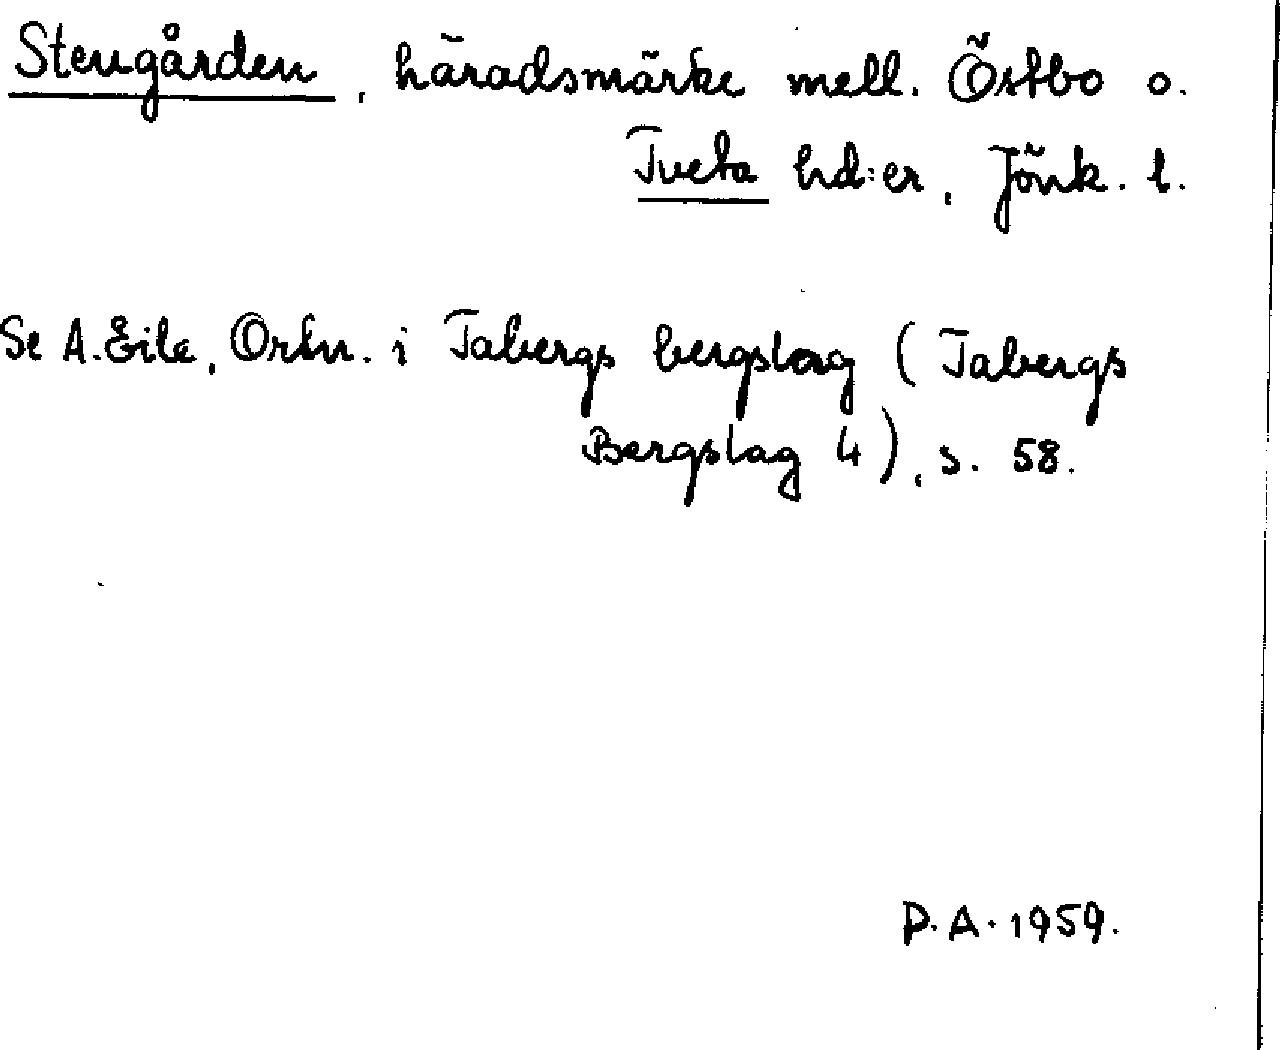 Stengården, häradsmärke mell. Östbo o.
Tveta hd:er, Jönk. l.
Se A. Eile, Ortn. i Tabergs bergslag (Tabergs
Bergslag 4), s. 58.
P.A. 1959.